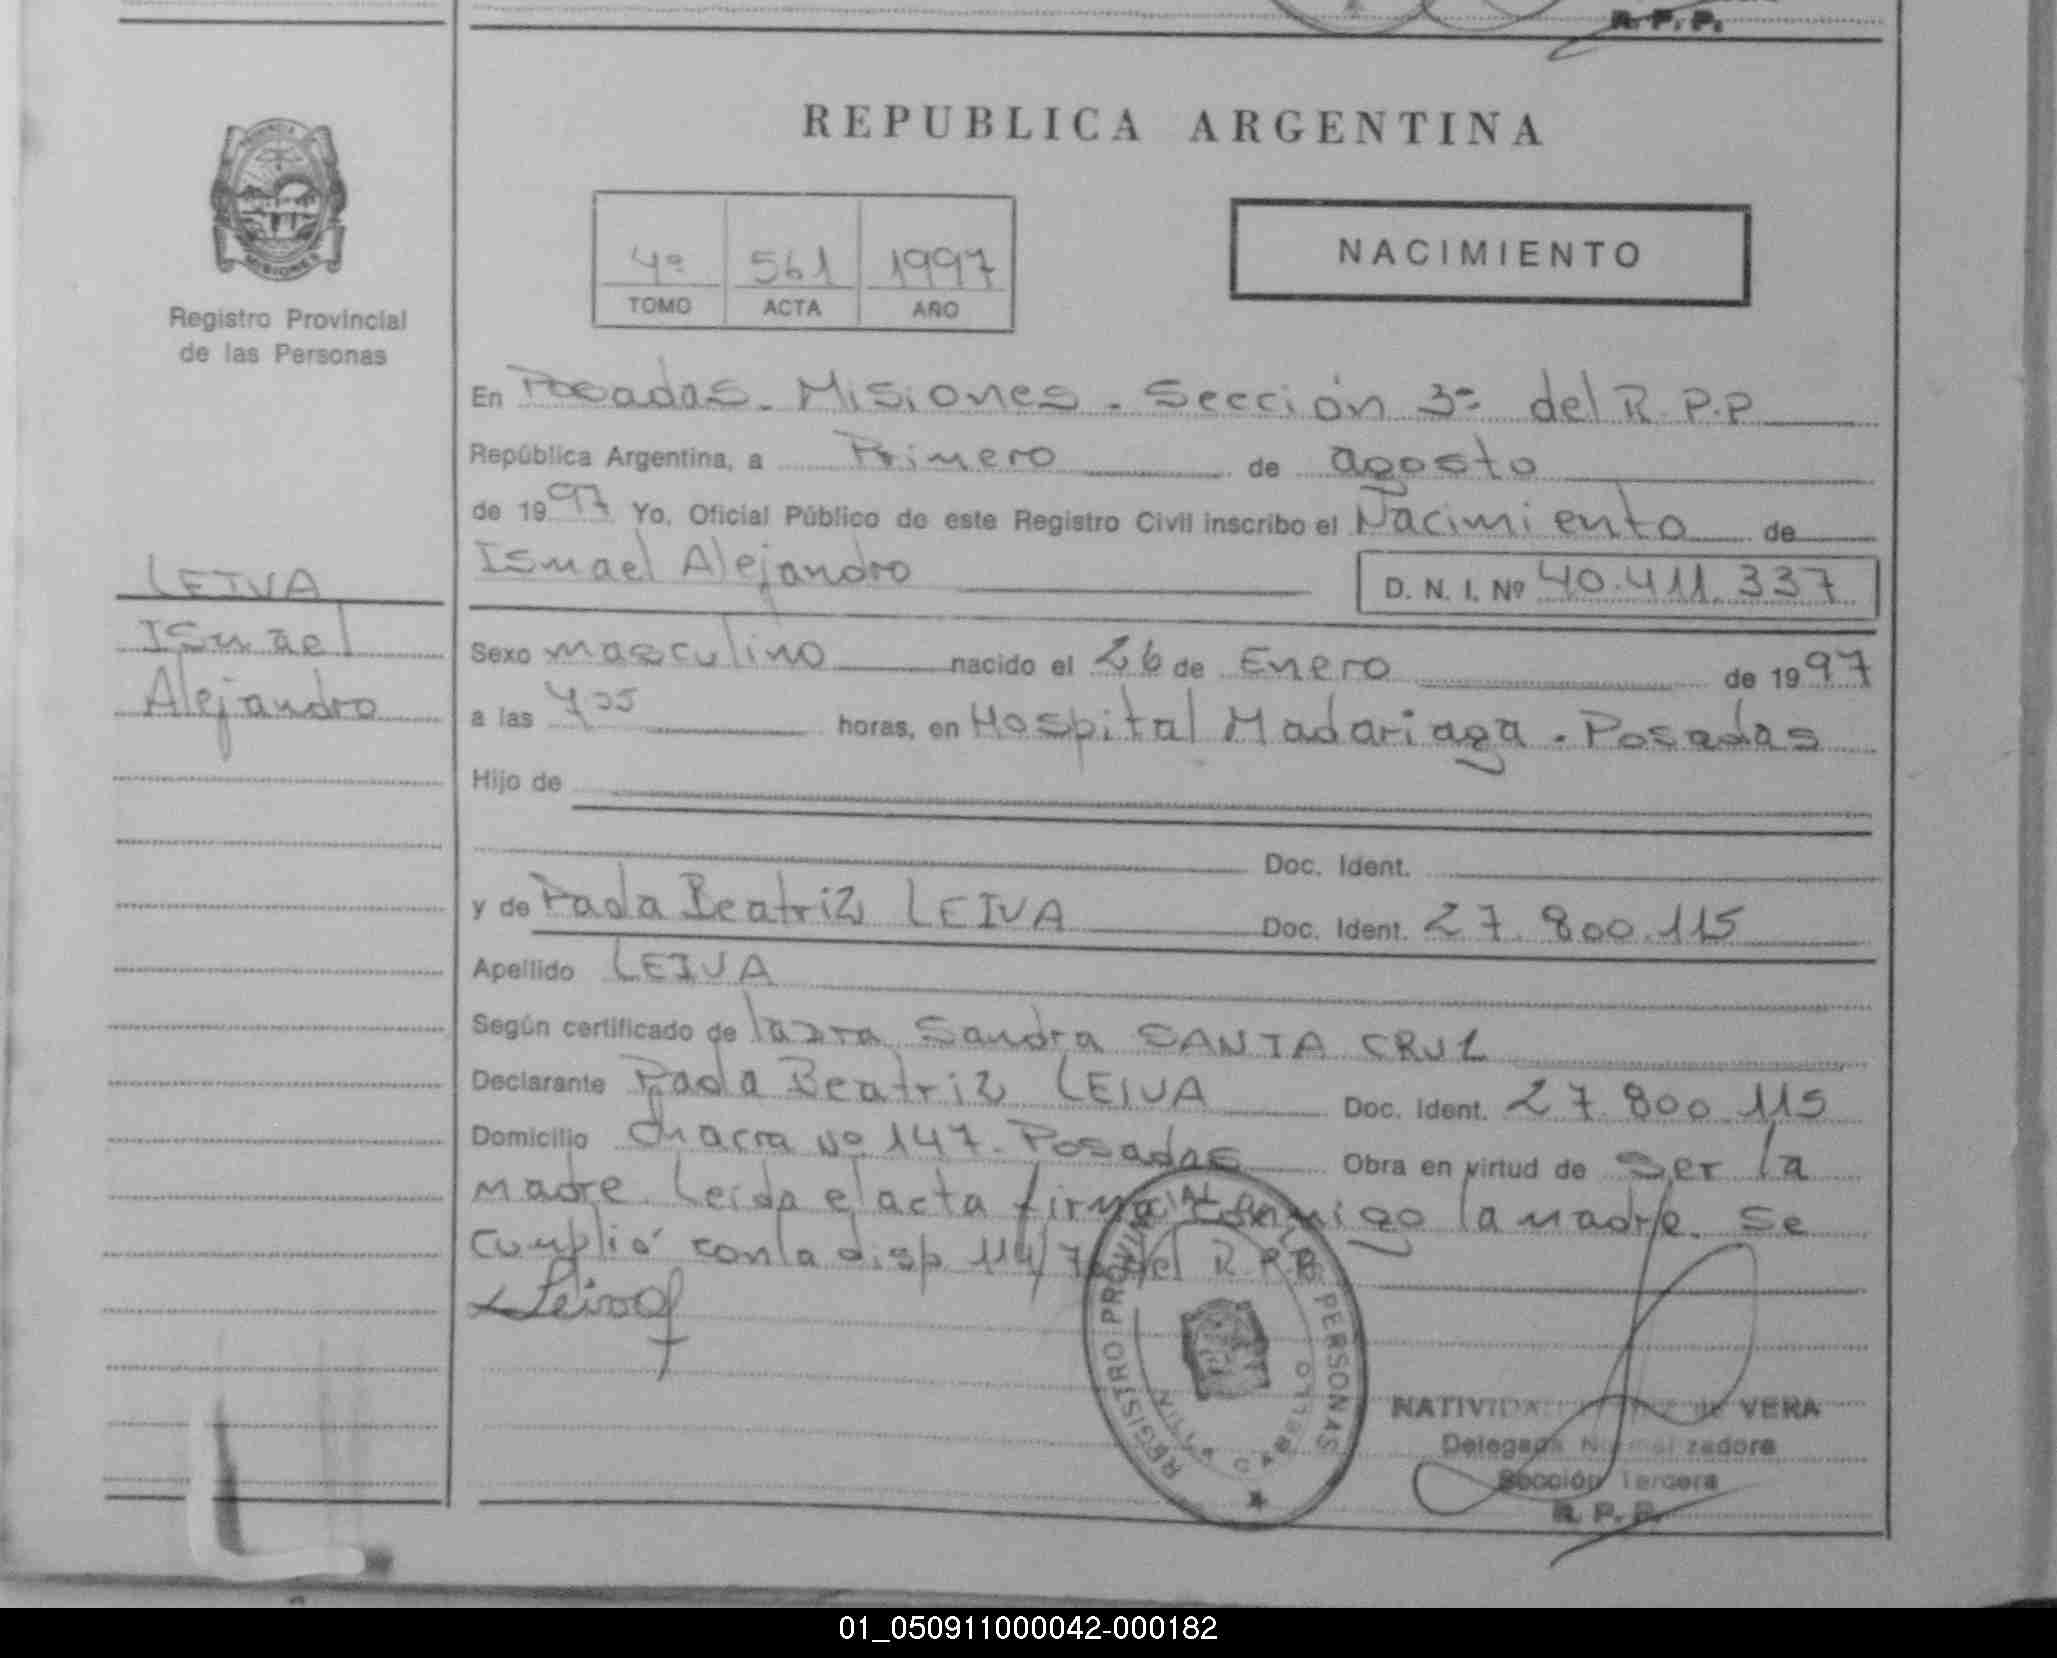 R. P. P.
REPUBLICA ARGENTINA
MISIONES
Registro Provincial
de las Personas
4º 561 1997
TOMO ACTA AÑO
NACIMIENTO
LEIVA
Ismael
Alejandro
En Posadas - Misiones - Sección 3º del R.P.P
República Argentina, a Primero de agosto
de 1997 Yo, Oficial Público de este Registro Civil inscribo el Nacimiento de
Ismael Alejandro D. N. I. Nº 40.411.337
Sexo masculino nacido el 26 de Enero de 1997
a las horas, en Hospital Madariaga - Posadas
Hijo de
Doc. Ident.
y de Paola Beatriz LEIVA Doc. Ident. 27.800.115
Apellido LEIVA
Según certificado de Sandra SANTA CRUZ
Declarante Paola Beatriz LEIVA Doc. Ident. 27.800.115
Domicilio Chacra Nº 147 - Posadas Obra en virtud de ser la
madre. Leída el acta firma conmigo la madre. Se
cumplió con la disp 114/ del R.P.P.
REGISTRO PROVINCIAL DE LAS PERSONAS
VILLA CABELLO
NATIVIDAD de VERA
Delegada Normalizadora
Sección Tercera
R. P. P.
01_050911000042-000182